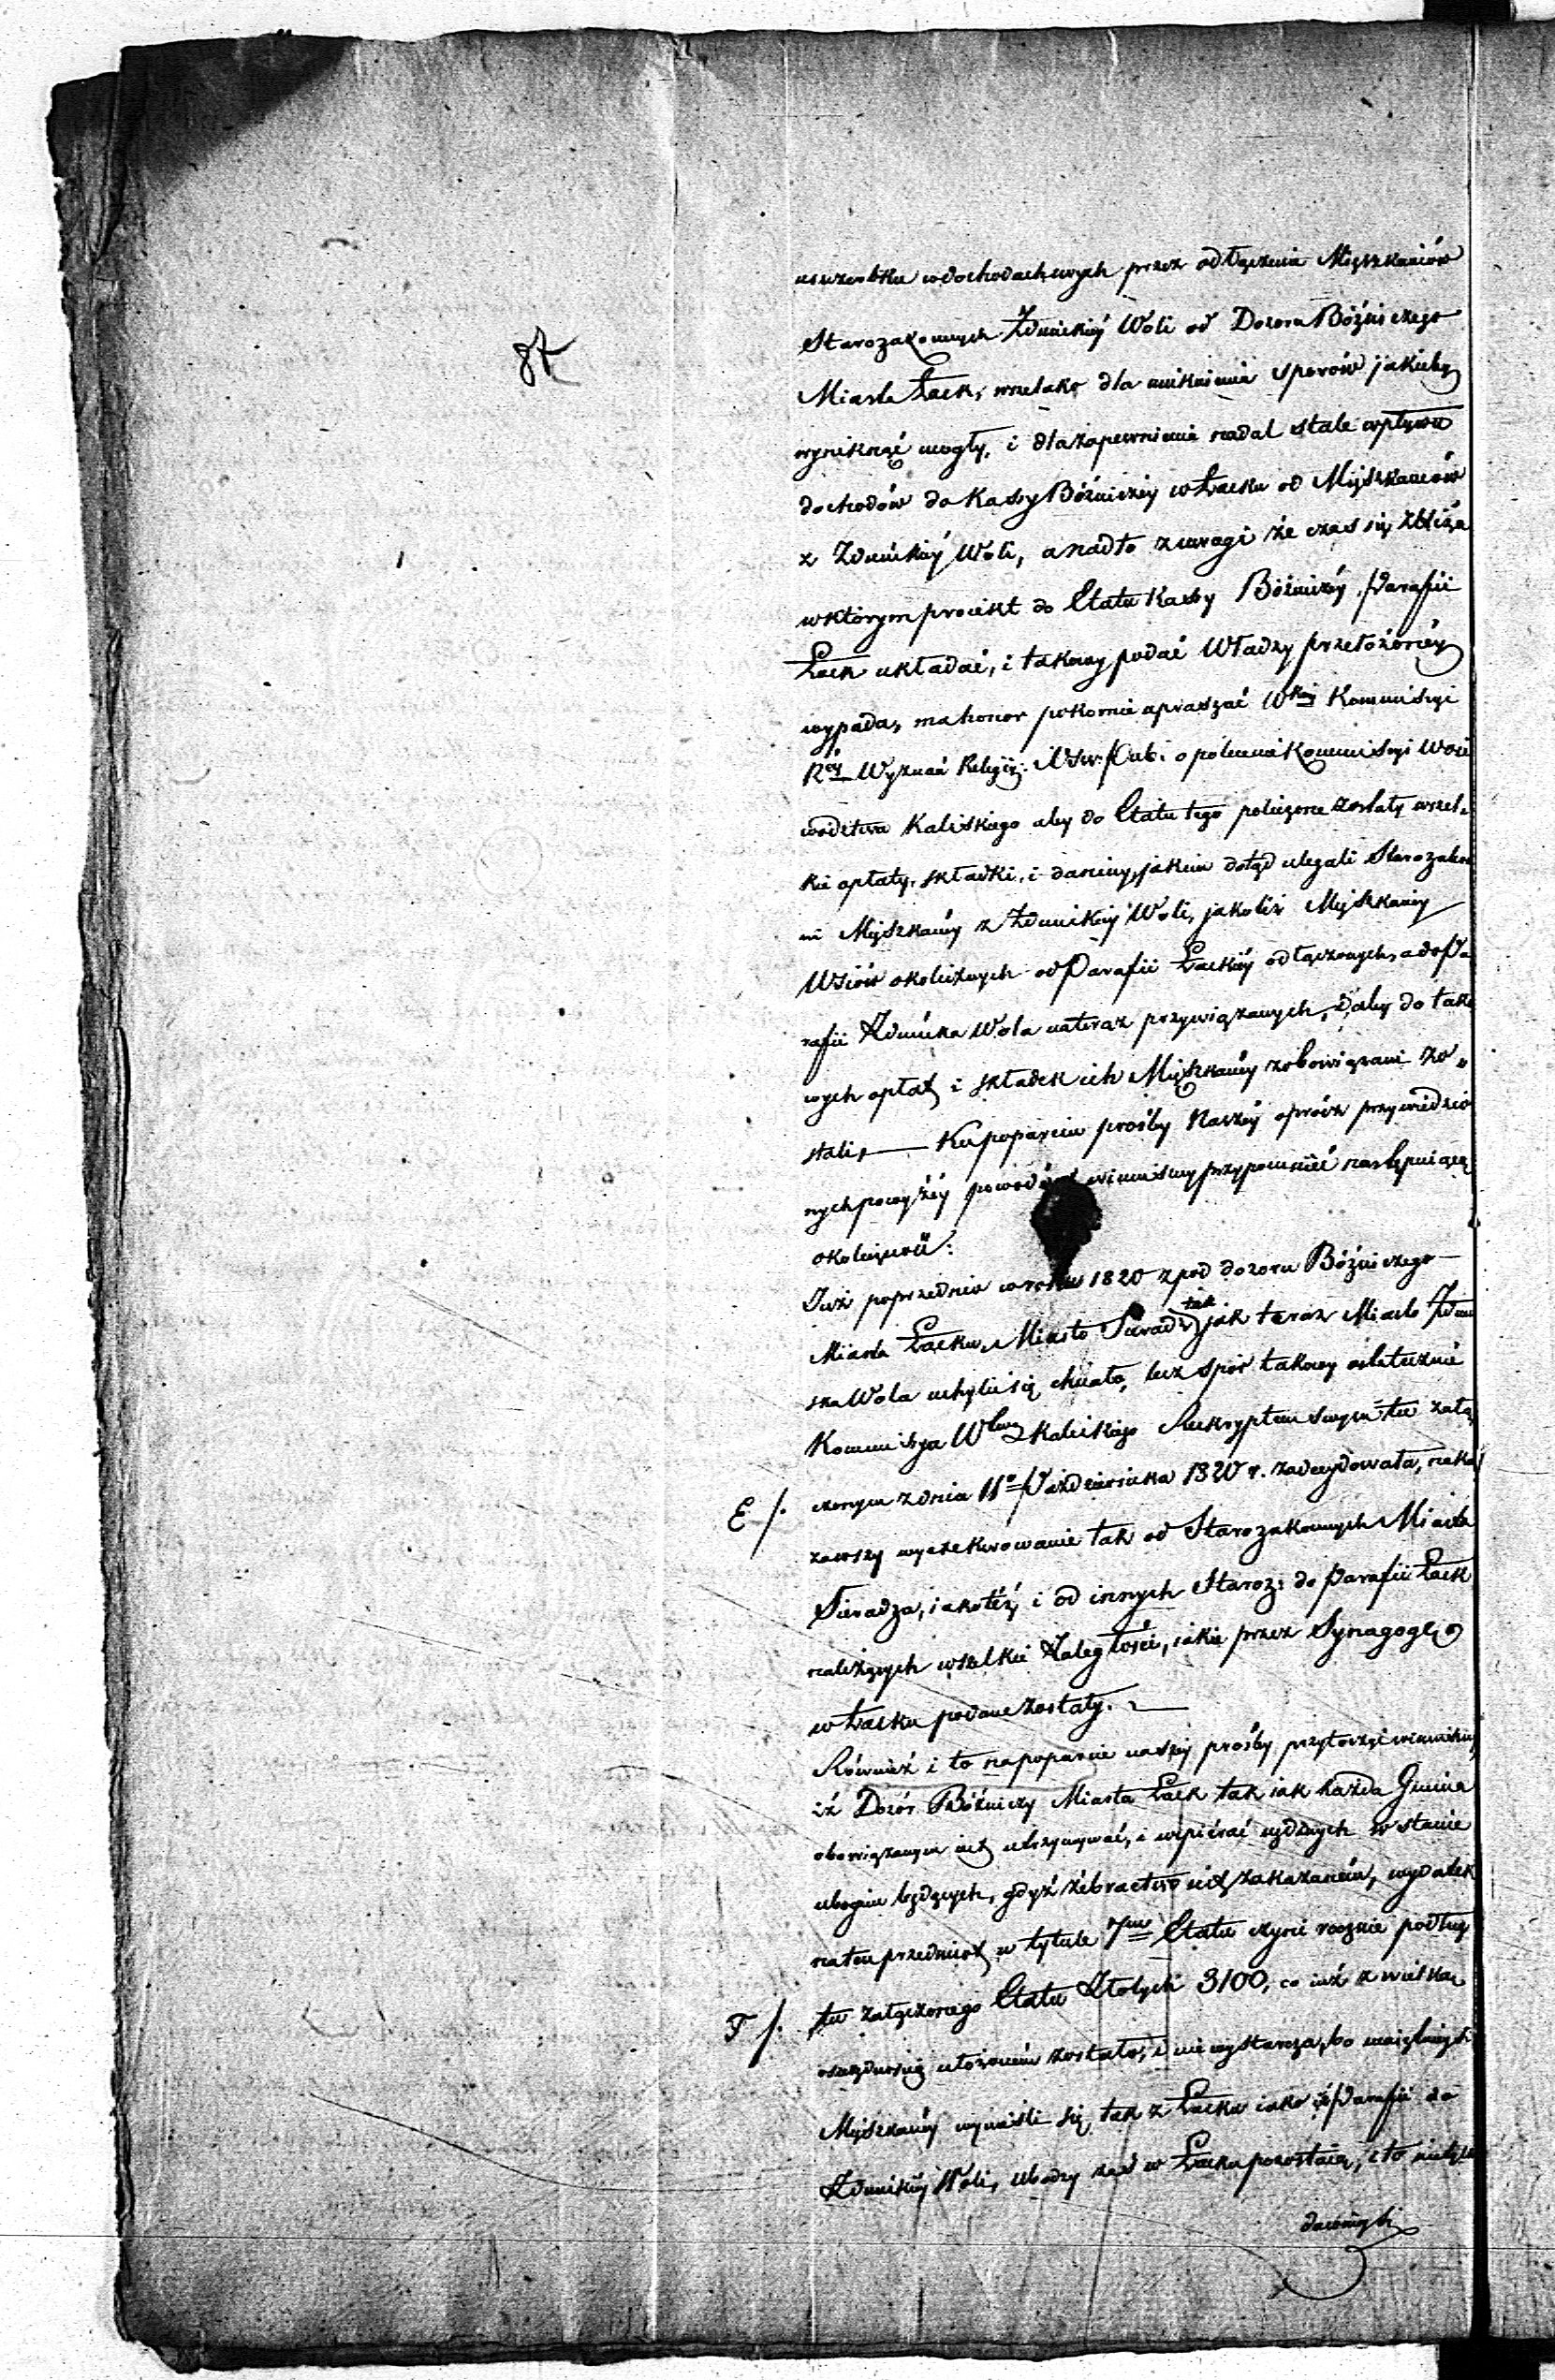 87
uszczerbku w dochodach swych przez odłączenie Mięszkańców
Starozakonnych Zduńskiéy Woli od Dozoru Bóżniczego
Miasta Łask, wszelako dla uniknienia sporów jakieby
wyniknąć mogły, i dla zapewnienia nadal stale wpływu
dochodów do Kassy Bóżniczéy w Łasku od Mięszkańców
z Zduńskiéy Woli, a nadto z uwagi że czas się zbliża
w którym proiekt do Etatu Kassy Bóżniczéy Parafii
Łask układać, i takowy podać Władzy przełożonéy
wypada, ma honor pokornie upraszać W<sup>kiej</sup> Kommissyi
R<sup>ey</sup> Wyznań Religij: i Ośw: Pub: o polecenie Kommissyi Woie
wództwa Kaliskiego aby do Etatu tego policzone zostały wszel-
kie opłaty, składki, i daniny, jakim dotąd ulegali Starozakon
ni Mięszkańcy z Zduńskiéy Woli, jakoliż Mięszkańcy
Wsiów okolicznych od Parafii Łaskiéy odłączonych, a do Pa
rafii Zduńska Wola nateraz przywiązanych, i aby do tako
wych opłat i składek ich Mięszkańcy zobowiązani zo-
stali, — Ku poparciu prośby Naszéy oprócz przywiedzio
nych powyżéy powodów winniśmy przypomnieć następuiącą
okoliczność:
Już poprzednio w roku 1820 z pod dozoru Bóżniczego
Miasta Łasku, Miasto Sieradz tak jak teraz Miasto Zduń
ska Wola uchylić się chciało, lecz spór takowy ostatecznie
Kommissya W<sup>twa</sup> Kaliskiego Reskryptem swym tu załą
E/. czonym z dnia 11° Października 1820 r. zadecydowała, naka
zawszy wyexekwowanie tak od Starozakonnych Miasta
Sieradza, iakoteż i od innych Staroz: do Parafii Łask
należących wszelkie Zaległości, iakie przez Synagogę
w Łasku podane zostały. —
Również i to na poparcie naszéy prośby przytoczyć winniśmy
iż Dozór Bóżniczy Miasta Łask tak iak każda Gmina
obowiązanym iest utrzymywać, i wspiérać nędznych w stanie
ubogim będących, gdyż żebractwo iest zakazaném, wydatek
na ten przedmiot w tytule 7<sup>mo</sup> Etatu czyni rocznie podług
F/. tu załączonego Etatu Złotych 3100, co iuż z wielką
oszczędnością ułożoném zostało, i nie wystarcza, bo maiętnieysi
Mięszkańcy wynieśli się tak z Łasku iako i z Parafii do
Zduńskiéy Woli, ubodzy zaś w Łasku pozostaią, i to nietylko
dawnieysi